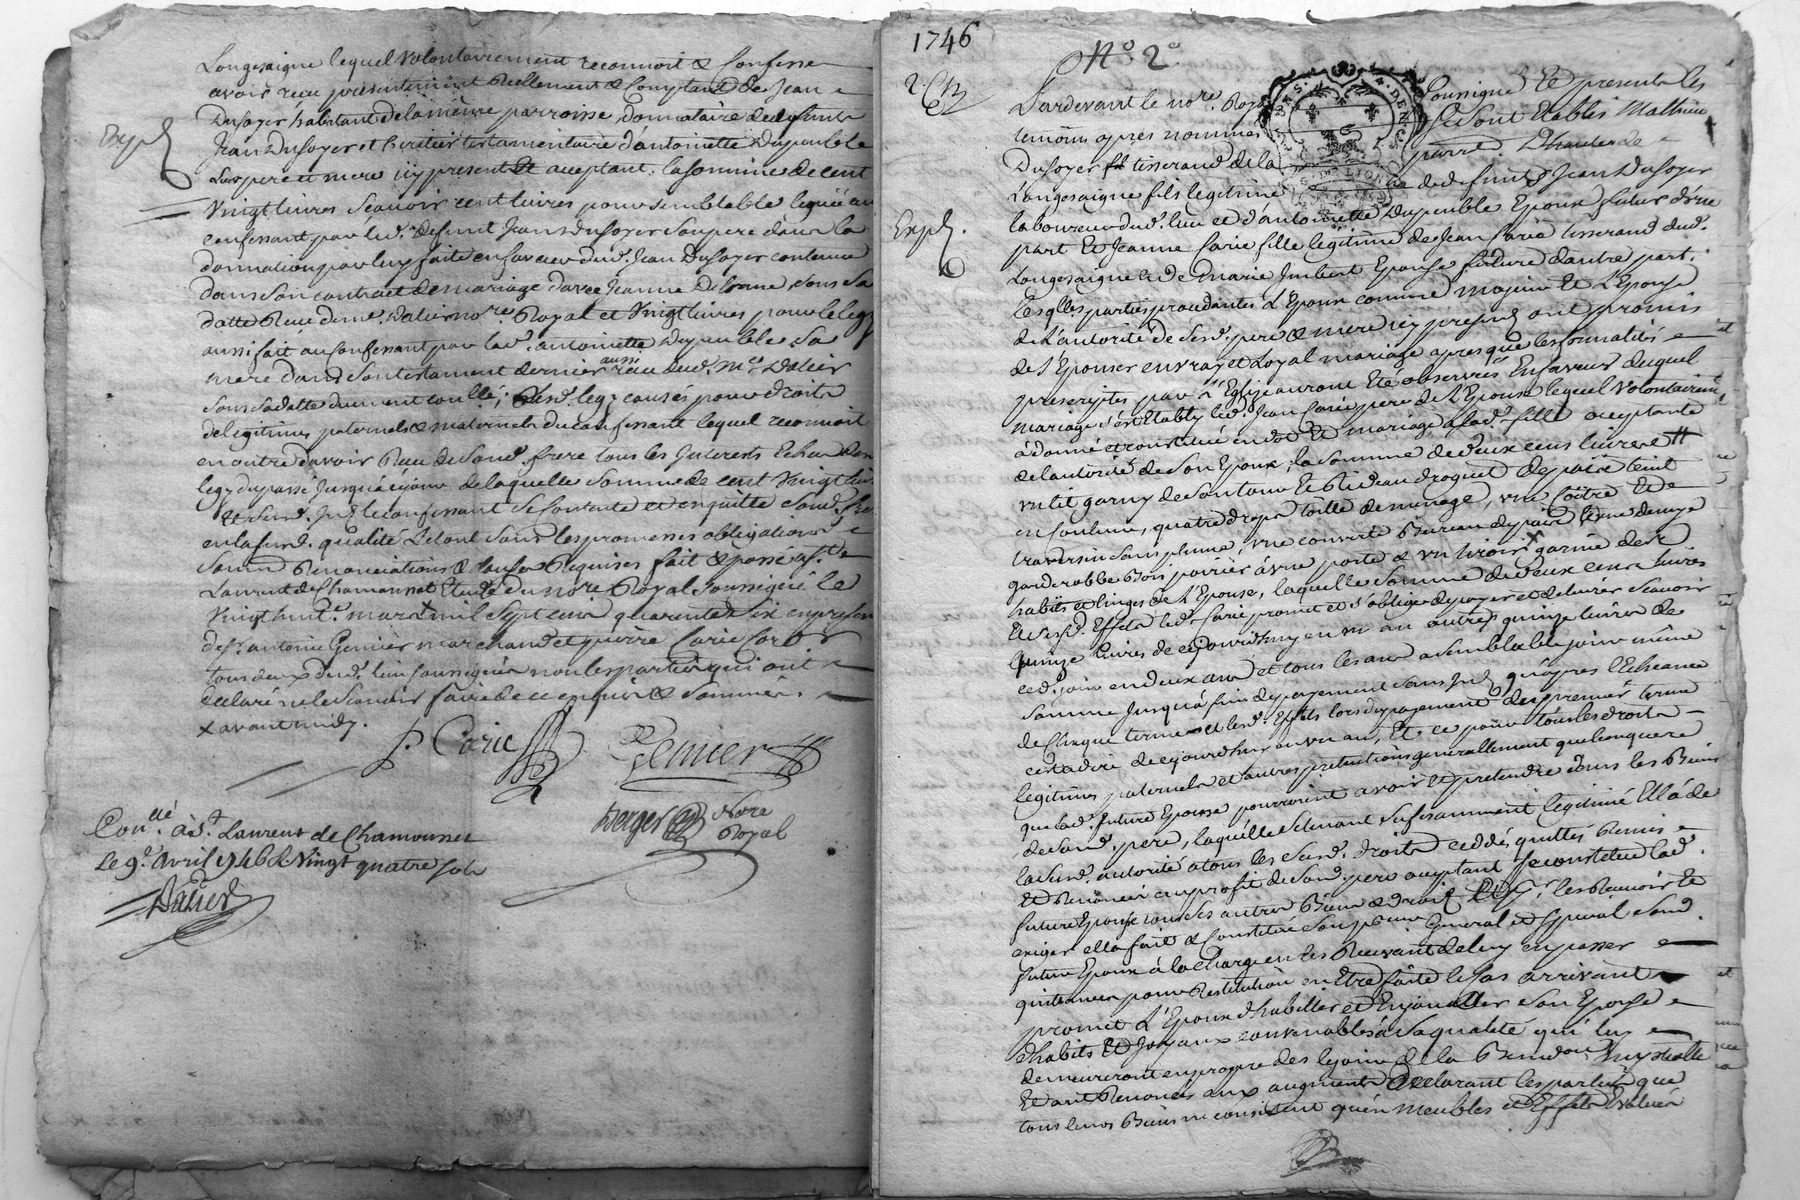 Longesaigne lequel volontairement reconnoit & confesse
avoir reçu presentement reellement & comptant de Jean
Dusoyer habitant de la meme parroisse, donnataire de deffunt
Jean Dusoyer et heritier testamentaire d'antoinette Dupeuble
ses pere et mere icy present et aceptant, la somme de cent
vingt livres scavoir cent livres pour semblable leguée au
confessant par led. deffunt Jean Dusoyer son pere dans la
donnation par luy faite en faveur dud. Jean Dusoyer contenue
dans son contract de mariage d'avec Jeanne Delorme, sous sa
datte Reçu de me. Dalier nore. Royal et vingt livres pour le legs
aussi fait au confessant par lad. antoinette Dupeuble sa
mere dans son testament dernier aussi reçu dud. Me. Dalier
sous sa datte dument controllé; lesd. legs causés pour droits
de legitimes paternels & maternels du confessant lequel reconnoit
en outre d'avoir Reçu de sond. frere tous les interests echus
legs du passé jusqu'a ce jour de laquelle somme de cent vingt livres
et susd. le confessant se contente et en quitte sond. frere
en la susd. qualité
sous Renonciations & clauses Requises fait & passé a st.
Laurent de Chamousset Etude du nore Royal soussigné le
vingt huit. mars x mil sept cent quarante six en presence
de sr. antoine Genier marchand et pierre Carie
tous deux dud. lieu soussignés non les parties qui ont
declaré ne le scavoir faire de ce enquis & sommés.
x avant midy.
P. Carie Genier
Berger Nore
Royal
Conllé. à St. Laurens de Chamousset
le 9e. avril 1746 R. vingt quatre sols
Dalier
Exp.
1746
N.º 2.º
2. Ch
Pardevant le nore. Royal soussigné Et presents les
temoins apres nommés se sont etablis Mathieu
Dusoyer tisserand de la parre. D'hautes de
Longesaigne fils legitime de deffunts Jean Dusoyer
laboureur dud. lieu et d'antoinette Dupeuble Epoux futur d'une
part Et Jeanne Carie fille legitime de Jean Carie tisserand dud.
Longesaigne et de marie Imbert Epouse future d'autre part.
lesqlles. parties procedantes L'Epoux comme majeur Et L'Epouse
de L'autorité de sesd. pere & mere icy presents ont promis
de s'Epouser en vray et Loyal mariage apres que les formalités
prescrites par L'Eglise auront Eté observées En faveur duquel
mariage s'est Etably led. Jean Carie pere de l'Epouse lequel volontairement
a donné et constitué en dot Et mariage a sad. fille aceptante
de l'autorité de son Epoux, la somme de deux cens livres #
un lit garny de son tour Et Rideau droguet de païs teint
en couleur, quatre draps toille de menage, une Coitre Et
traversin sans plume, une couverte Bureau du païs
garderobbe Bois poirier à une porte & un tiroir x garnie de
habits et linges de L'Epouse, laquelle somme de deux cens livres
Et susd. Effets led. Carie promet et s'oblige de payer et delivrer scavoir
quinze livres de ce jourd'huy en un an autres quinze livres de
ced. jour en deux ans et tous les ans a semblable jour même
somme jusqu'à fin de payement sans qu'apres l'Echeance
de chaque terme et lesd. Effets lors du payement du premier terme
c'est a dire de ce jourd'huy en un an, Et ce pour tous les droits
legitimes paternels et autres pretentions generallement quelconques
que lad. future Epouse pourroient avoir Et pretendre dans les Biens
de sond. pere, laquelle se tenant suffisamment legitimé Ella de
la susd. autorité a tous les susd. droits ceddés, quittés Remis
Et Renoncé au profit de sond. pere aceptant se constitue lad.
future Epouse tous ses autres Biens & droits les Recevoir Et
exiger ella fait & constitué son pcureur general et special sond.
futur Epoux à la charge en les Recevant de luy en passer
quittances pour Restitution en Etre faite le cas arrivant
promet L'Epoux d'habiller et Enjoualler son Epouse
d'habits Et Joyaux convenables à sa qualité qui luy
demeureront en propre
Et ont Renoncés aux augments Declarant les parties que
tous leurs Biens ne consistent qu'en meubles et Effets Evalués
Exp.